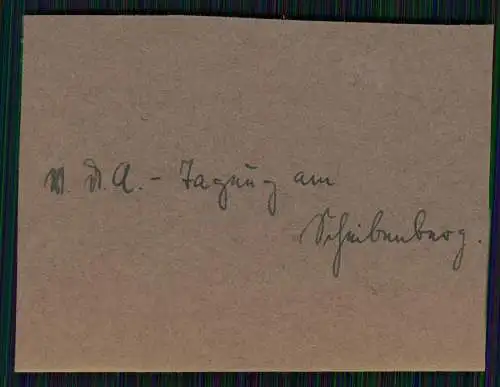 V. D. A. - Tagung am
Scheibenberg.